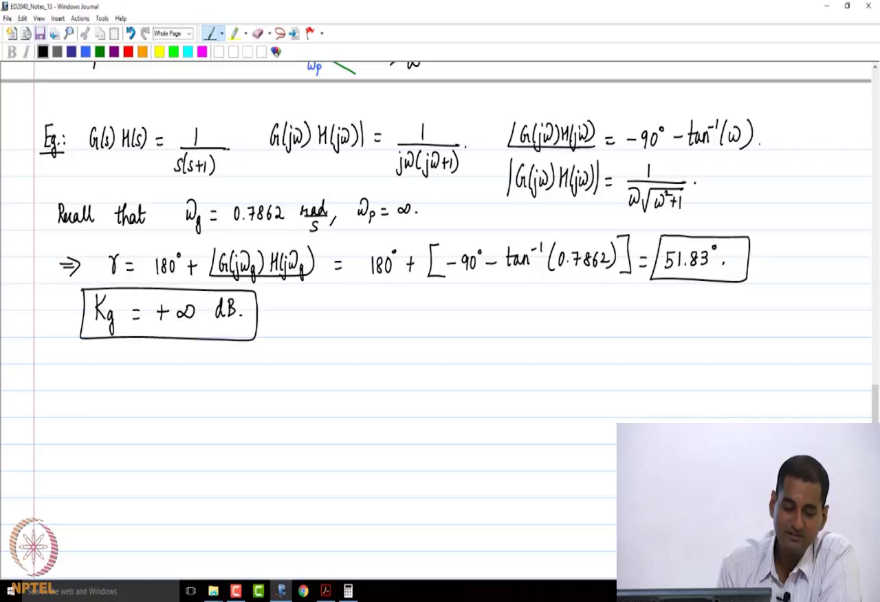 ED2040_Notes_13 - Windows Journal
File Edit View Insert Actions Tools Help
Whole Page
B I
ωp → ω
Eg.: G(s) H(s) = 1/(s(s+1)) G(jω) H(jω)| = 1/(jω(jω+1)). ∠G(jω)H(jω) = -90° - tan⁻¹(ω).
|G(jω) H(jω)| = 1/(ω√(ω²+1)).
Recall that ωg = 0.7862 rad/s, ωp = ∞.
⇒ γ = 180° + ∠G(jωg) H(jωg) = 180° + [-90° - tan⁻¹(0.7862)] = 51.83°.
Kg = +∞ dB.
NPTEL
the web and Windows